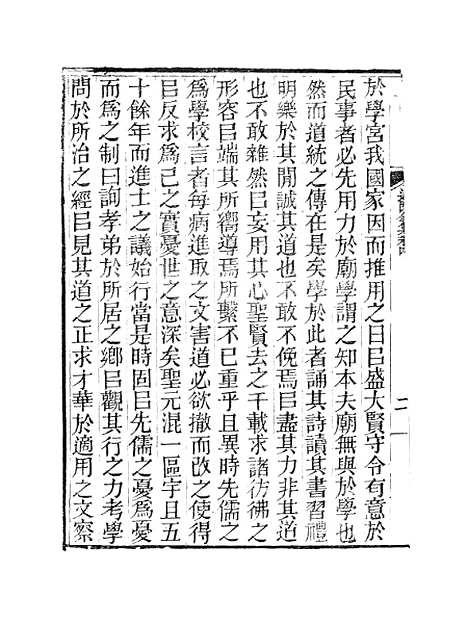 於學宮我國家因而推用之日㠯盛大賢守令有意於
民事者必先用力於廟學謂之知本夫廟無與於學也
然而道統之傳在是矣學於此者誦其詩讀其書習禮
明樂於其閒誠其道也不敢不俛焉㠯盡其力非其道
也不敢雜然㠯妄用其心聖賢去之千載求諸彷彿之
形容㠯端其所嚮導焉所繫不已重乎且異時先儒之
爲學校言者每病進取之文害道必欲撤而改之使得
㠯反求爲己之實憂世之意深矣聖元混一區宇且五
十餘年而進士之議始行當是時固㠯先儒之憂爲憂
而爲之制曰詢孝弟於所居之鄉㠯觀其行之力考學
問於所治之經㠯見其道之正求才華於適用之文察
二